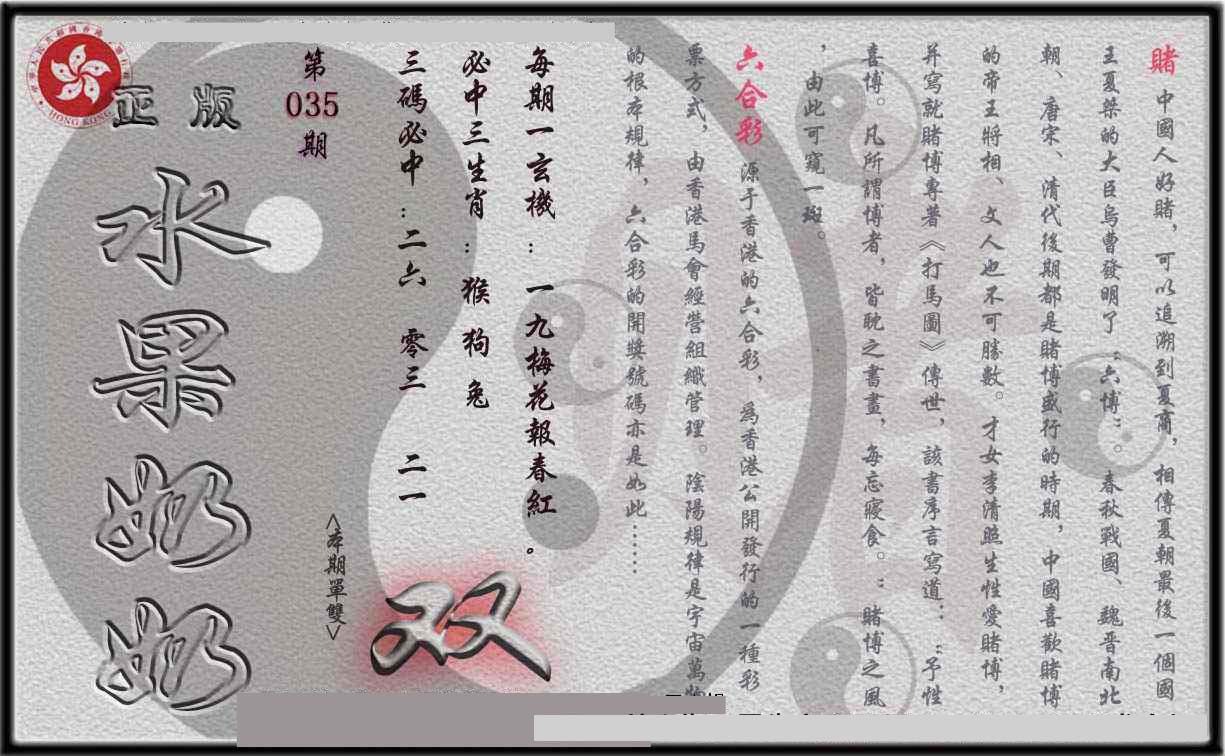 賭 中國人好賭，可以追溯到夏商，相傳夏朝最後一個國
王夏桀的大臣烏曹發明了“六博”。春秋戰國、魏晋南北
朝、唐宋、清代後期都是賭博盛行的時期，中國喜歡賭博
的帝王將相、文人也不可勝數。才女李清照生性愛賭博，
并寫就賭博專著《打馬圖》傳世，該書序言寫道：“予性
喜博。凡所謂博者，皆耽之書畫，每忘寢食。”賭博之風
，由此可窺一斑。
六合彩 源于香港的六合彩，爲香港公開發行的一種彩
票方式，由香港馬會經營組織管理。陰陽規律是宇宙萬物
的根本規律，六合彩的開獎號碼亦是如此……
每期一玄機：一九梅花報春紅。
必中三生肖：猴 狗 兔
三碼必中：二六 零三 二一
<本期單雙>
双
第
035
期
正版
水果奶奶
HONG KONG